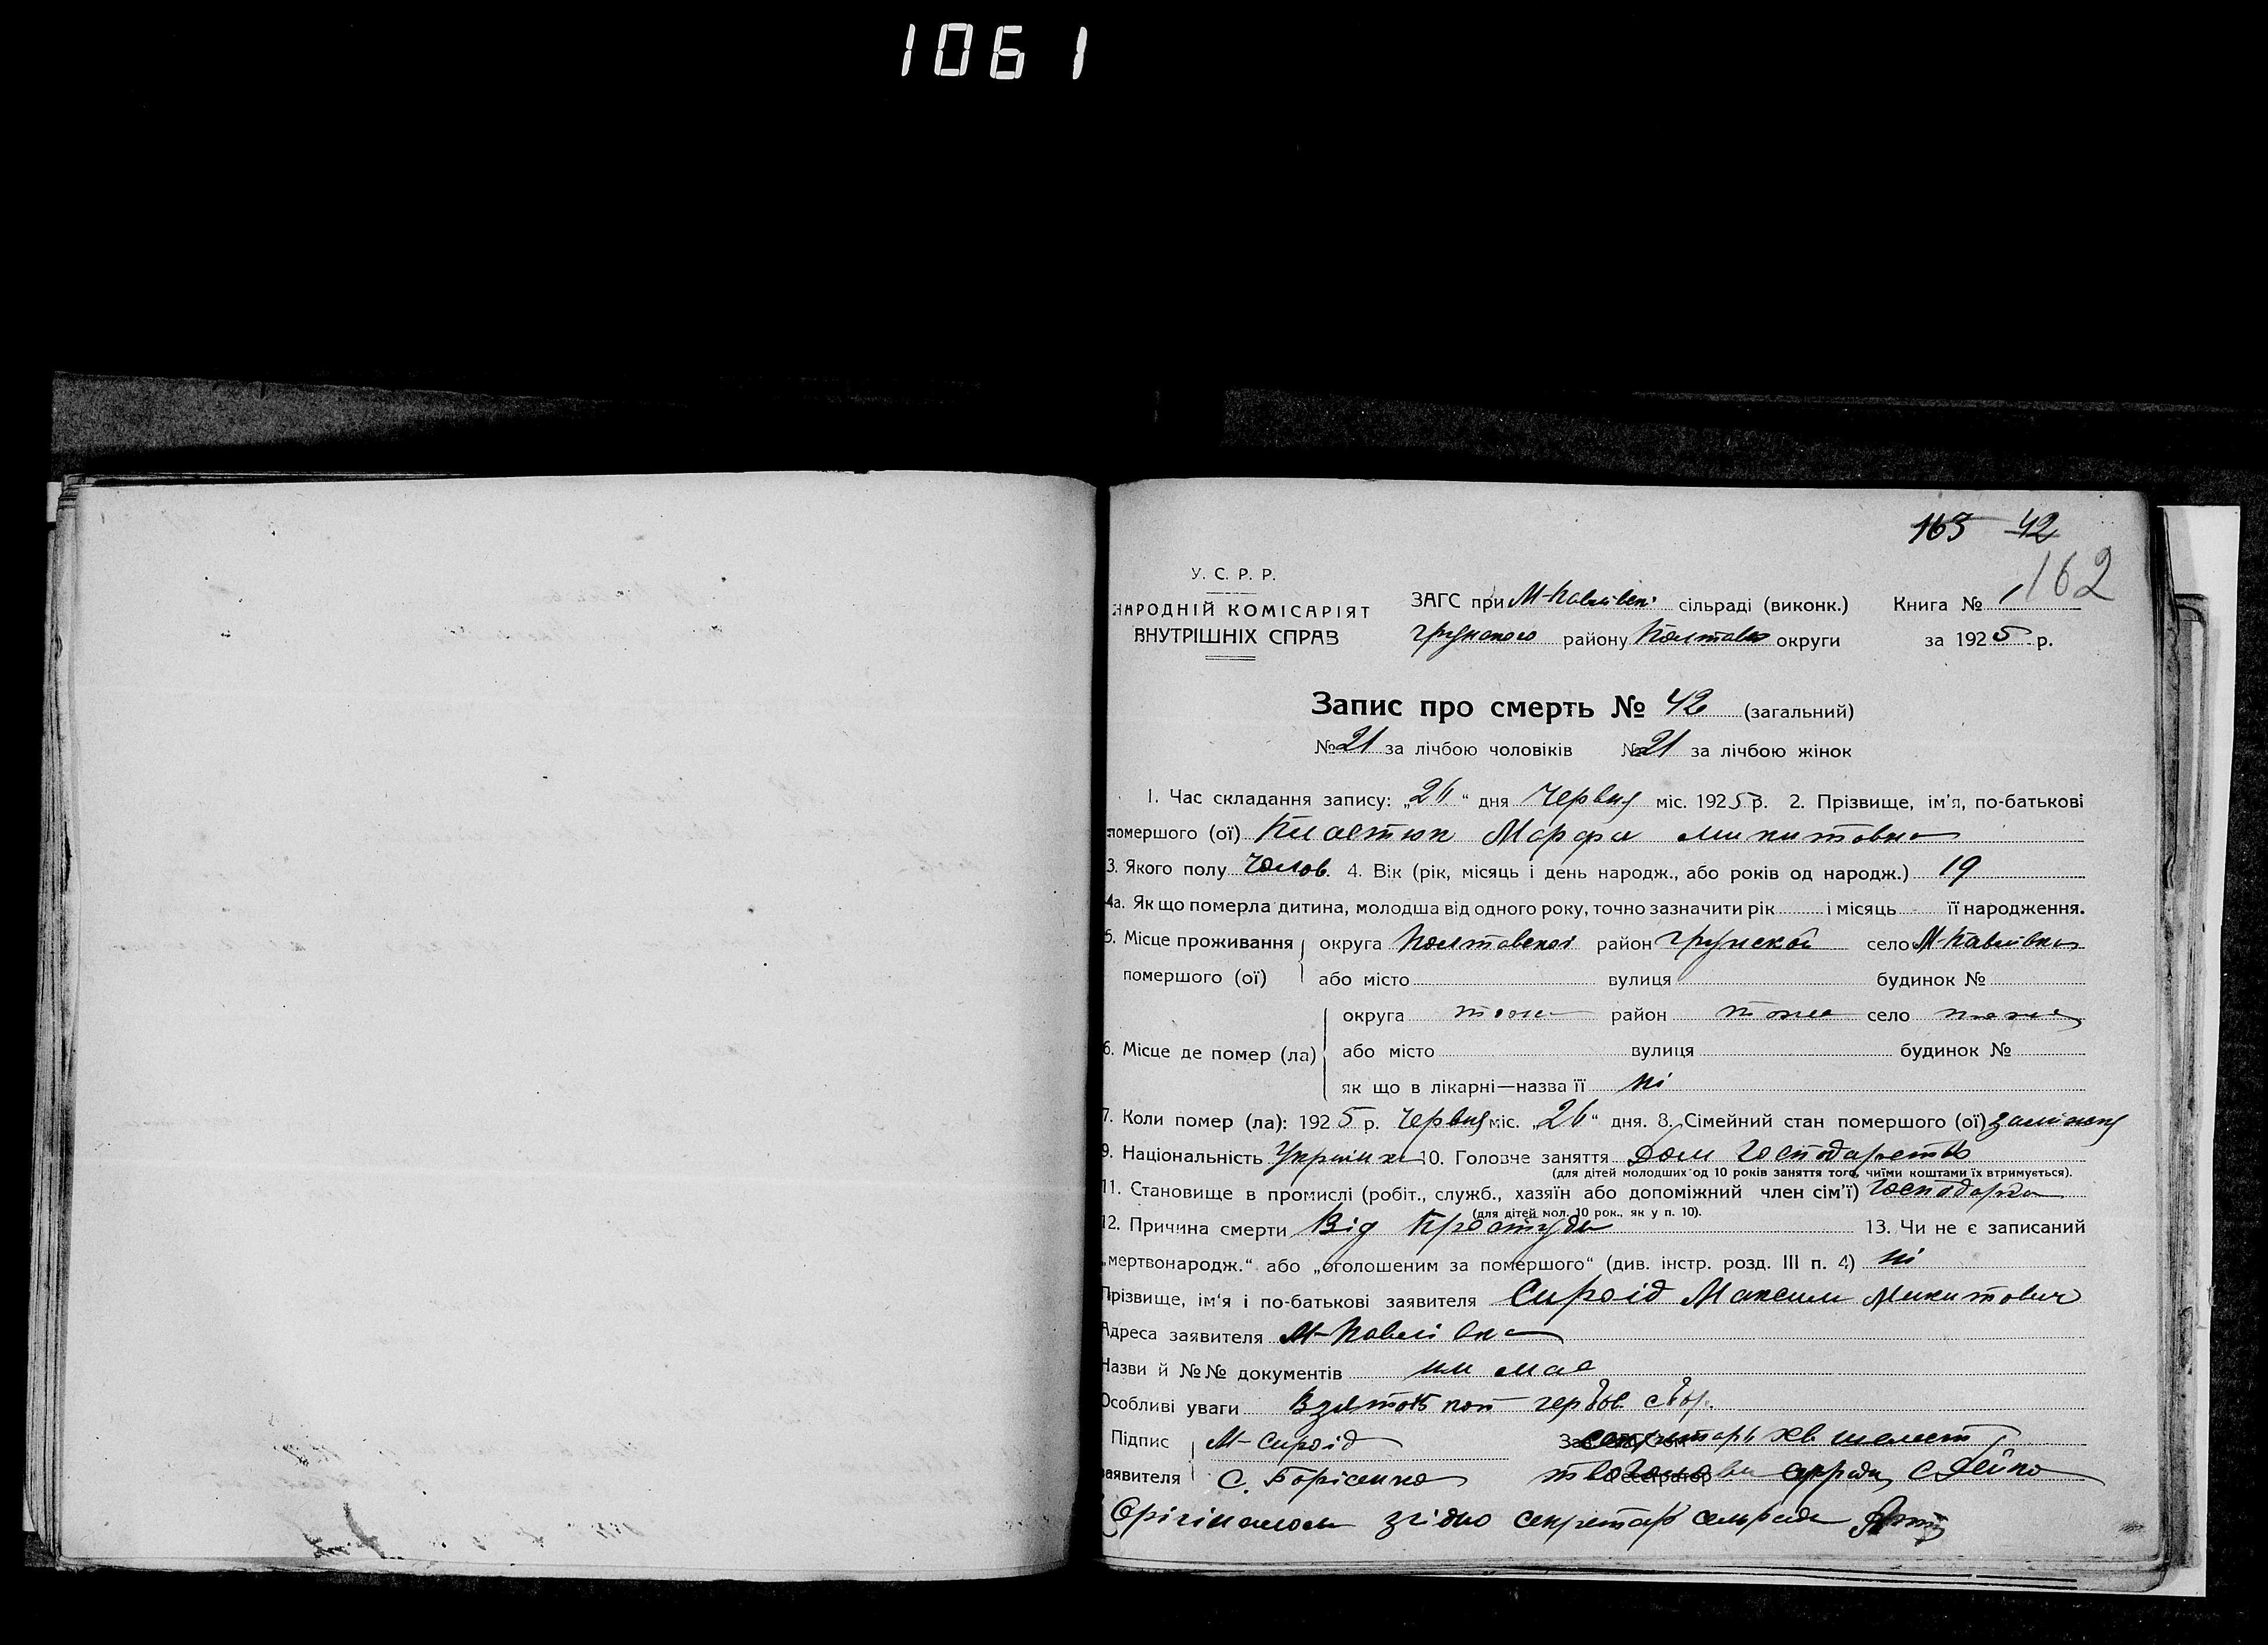 1061
163 42
162
У. С. Р. Р.
НАРОДНІЙ КОМІСАРІЯТ
ВНУТРІШНІХ СПРАВ
ЗАГС при М-Павлівскі сільраді (виконк.) Книга № 1
Грунского району Полтавс округи за 1925 р.
Запис про смерть № 42 (загальний)
№ 21 за лічбою чоловіків № 21 за лічбою жінок
1. Час складання запису: „26“ дня Червця міс. 1925 р. 2. Прізвище, ім'я, по-батькові
помершого (ої) Пластюк Марфа Микитовна
3. Якого полу Чолов. 4. Вік (рік, місяць і день народж., або років од народж.) 19
4а. Як що померла дитина, молодша від одного року, точно зазначити рік і місяць її народження.
5. Місце проживання помершого (ої) округа Полтавскоі район Грунской село М-Павлівка
або місто вулиця будинок №
6. Місце де помер (ла) округа тоже район тоже село тоже
або місто вулиця будинок №
як що в лікарні—назва її ні
7. Коли помер (ла): 1925 р. Червця міс. „26“ дня. 8. Сімейний стан помершого (ої) замужня
9. Національність Українка 10. Головне заняття Дом Господарство
(для дітей молодших од 10 років заняття того, чиїми коштами їх втримується).
11. Становище в промислі (робіт., служб., хазяїн або допоміжний член сім'ї) Господарка
(для дітей мол. 10 рок., як у п. 10).
12. Причина смерти Від Простуди 13. Чи не є записаний
„мертвонародж.“ або „оголошеним за помершого“ (див. інстр. розд. III п. 4) ні
Прізвище, ім'я і по-батькові заявителя Сироїд Максим Микитович
Адреса заявителя М-Павлівка
Назви й №№ документів ни має
Особливі уваги гербов. сбор.
Підпис заявителя М-Сироід Зав. ЗАГС'ом секретарь
С. Борісенко Реєстратор Голова С Дейко
Орігіналом згідно секретарь сельради